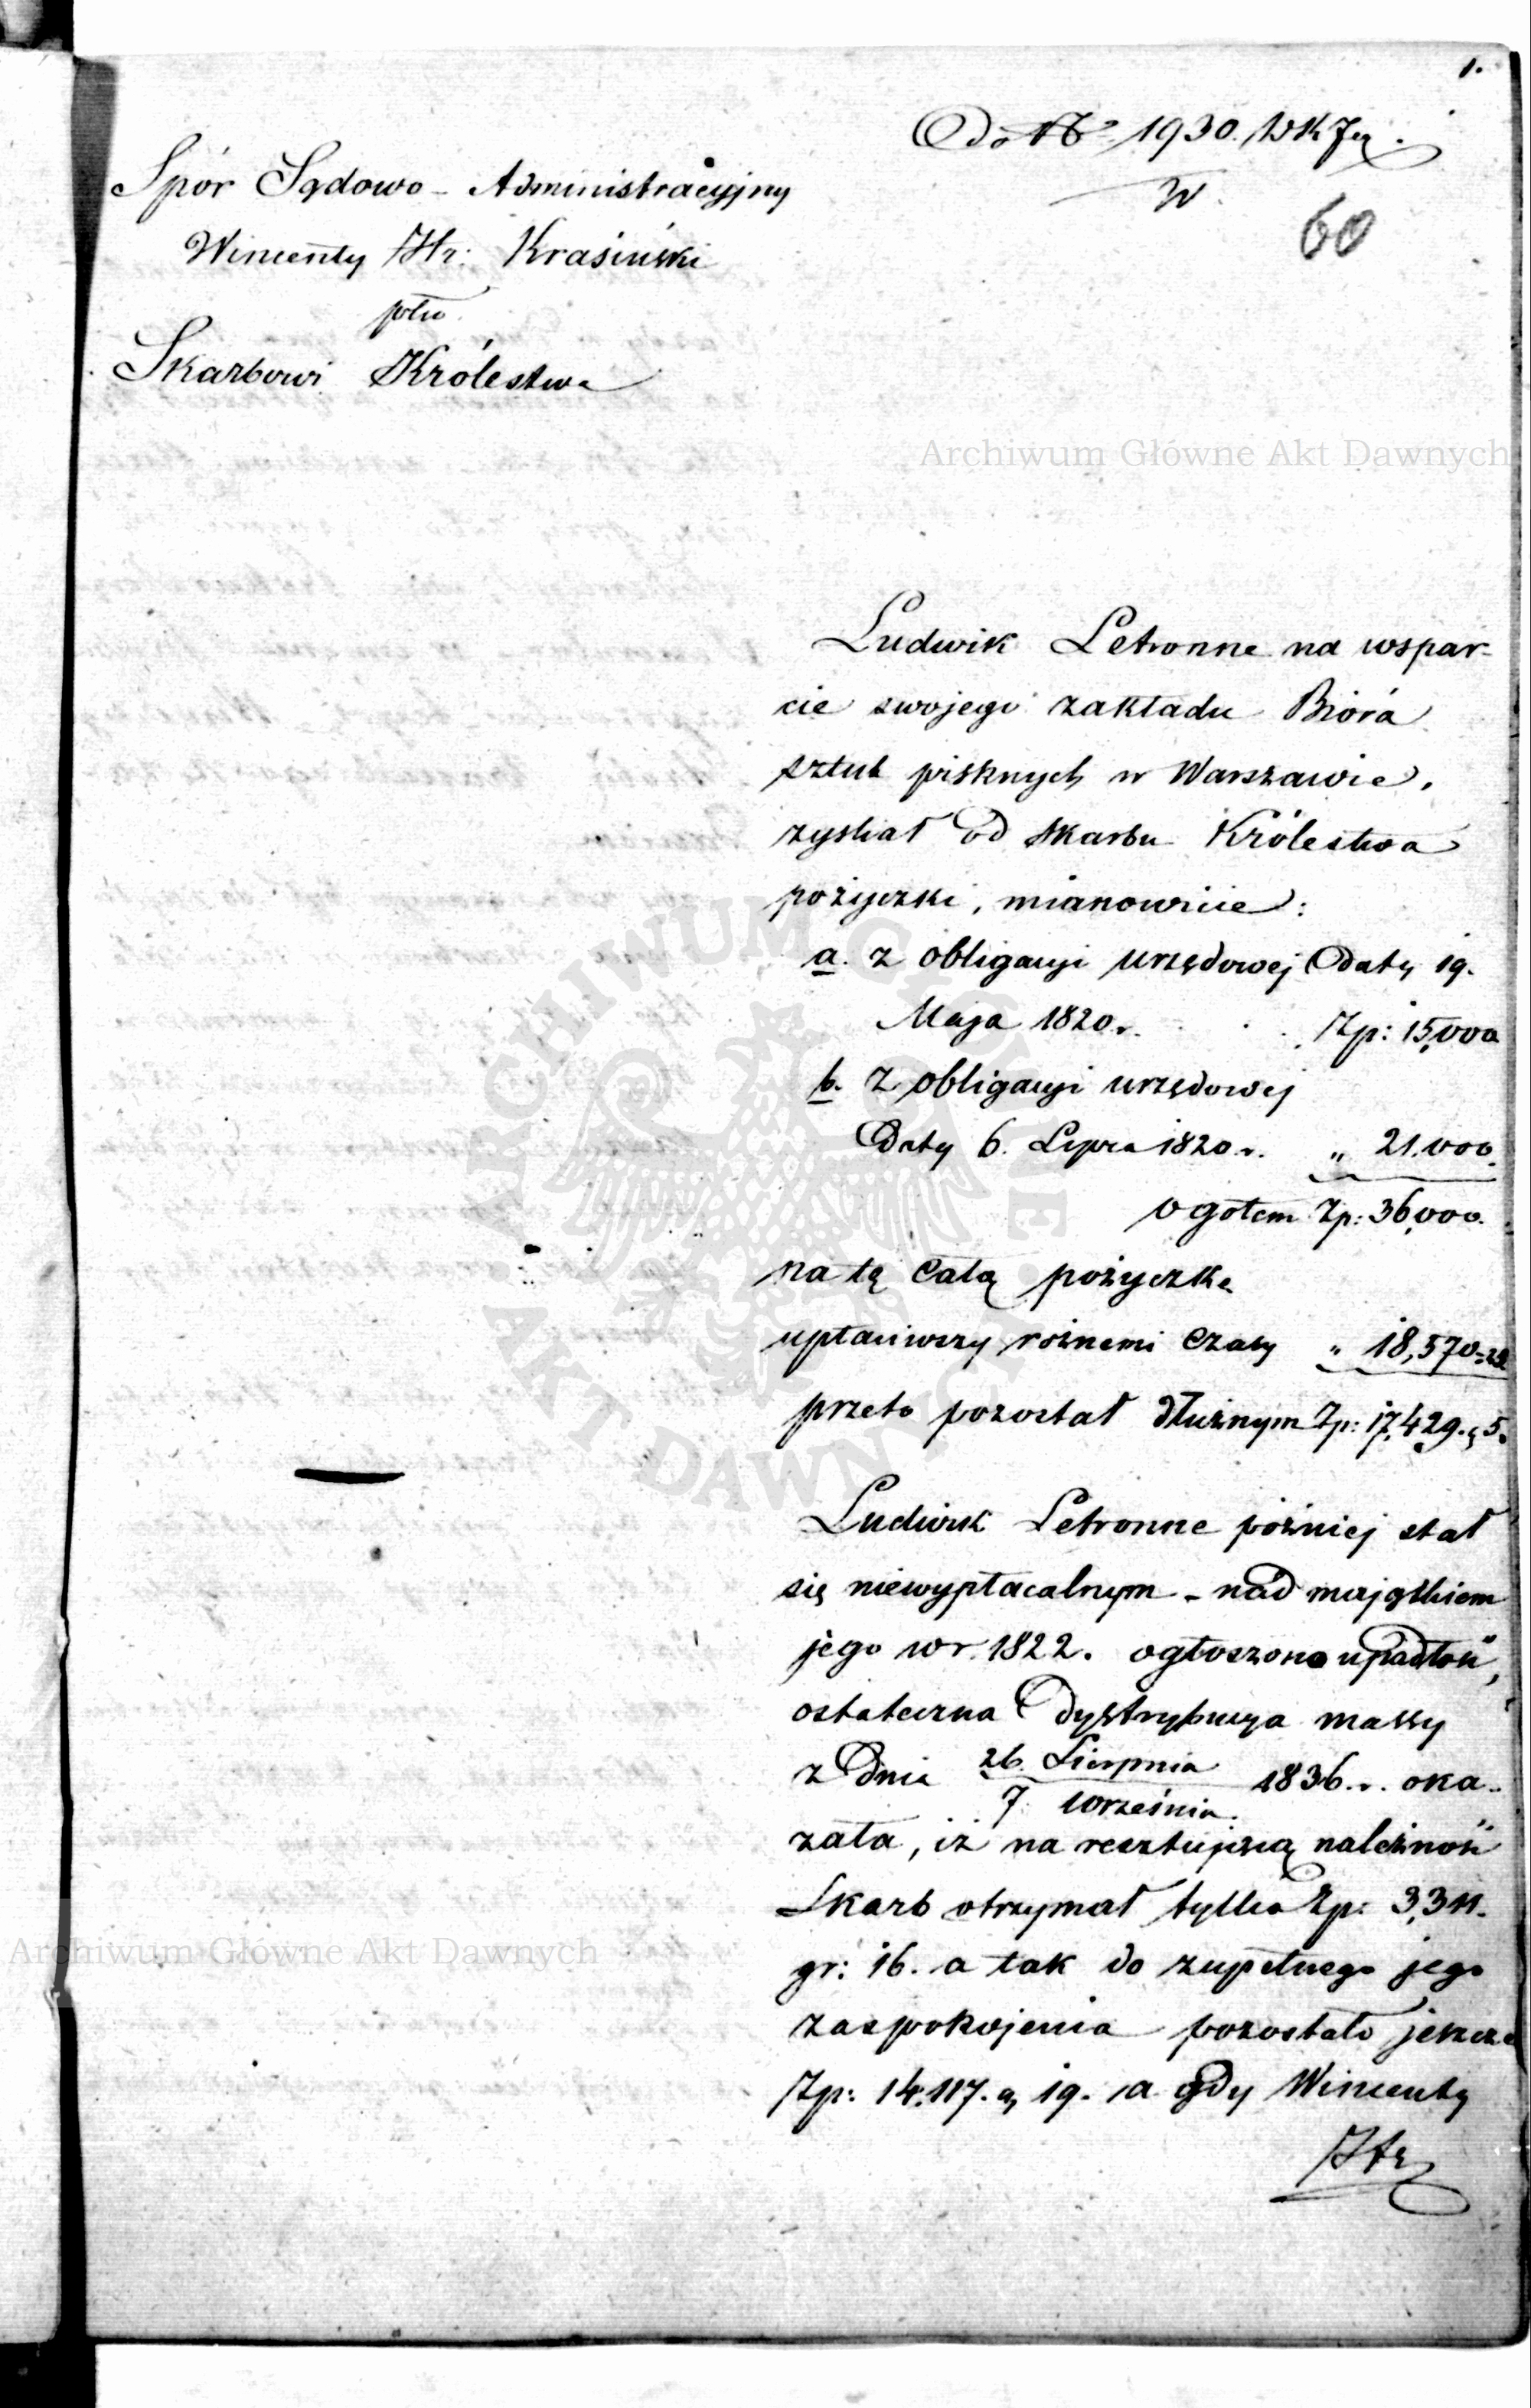 1.
Do No 1930. WK
W.
60
Spór Sądowo-Administracyjny
Wincenty Hr: Krasiński
ptko
Skarbowi Królestwa
Archiwum Główne Akt Dawnych
Ludwik Letronne na wspar-
cie swojego zakładu Biórá
sztuk pięknych w Warszawie,
zyskał od Skarbu Królestwa
pożyczki, mianowicie:
a. z obligacyi urzędowej Daty 19.
Maja 1820 r. Zp: 15,000
b. z obligacyi urzędowej
Daty 6. Lipca 1820 r. „ 21.000.
ogołem Zp: 36,000.
na tę całą pożyczkę
upłaciwszy rożnemi czasy „ 18,570 = 25
przeto pozostał dłużnym Zp: 17,429. g 5.
Ludwik Letronne później stał
się niewypłacalnym - nad majątkiem
jego w r. 1822. ogłoszono upadłość,
ostateczna Dystrybucya massy
z Dnia 26. Sierpnia 1836 r. oka-
7. Września.
zała, iż na resztującą należność
Skarb otrzymał tylko Zp: 3,311.
gr: 16. a tak do zupełnego jego
zaspokojenia pozostało jeszcze
Zp: 14,117. g 19. a gdy Wincenty
Hr.
Archiwum Główne Akt Dawnych
ARCHIWUM GŁÓWNE
AKT DAWNYCH